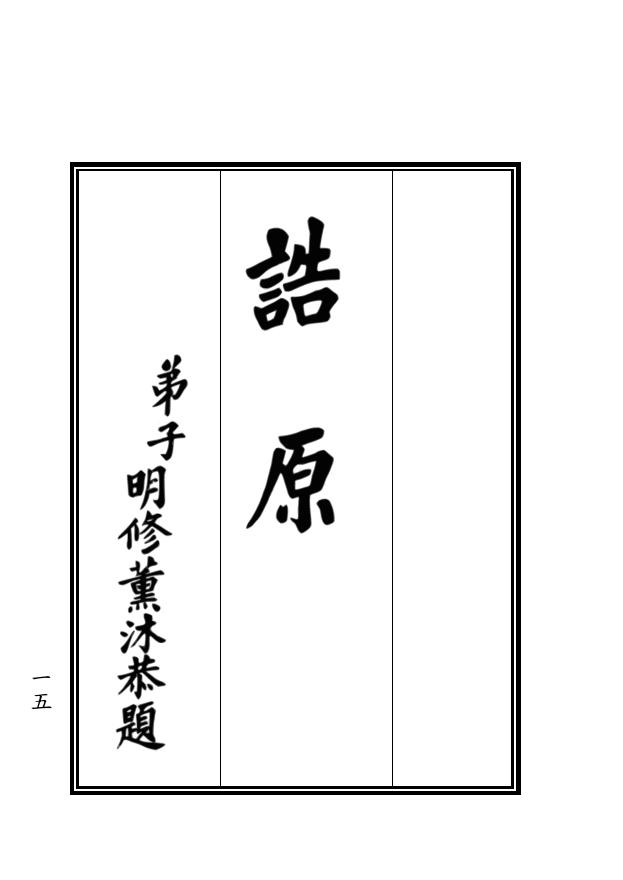 誥原
弟子明修薰沐恭題
一五